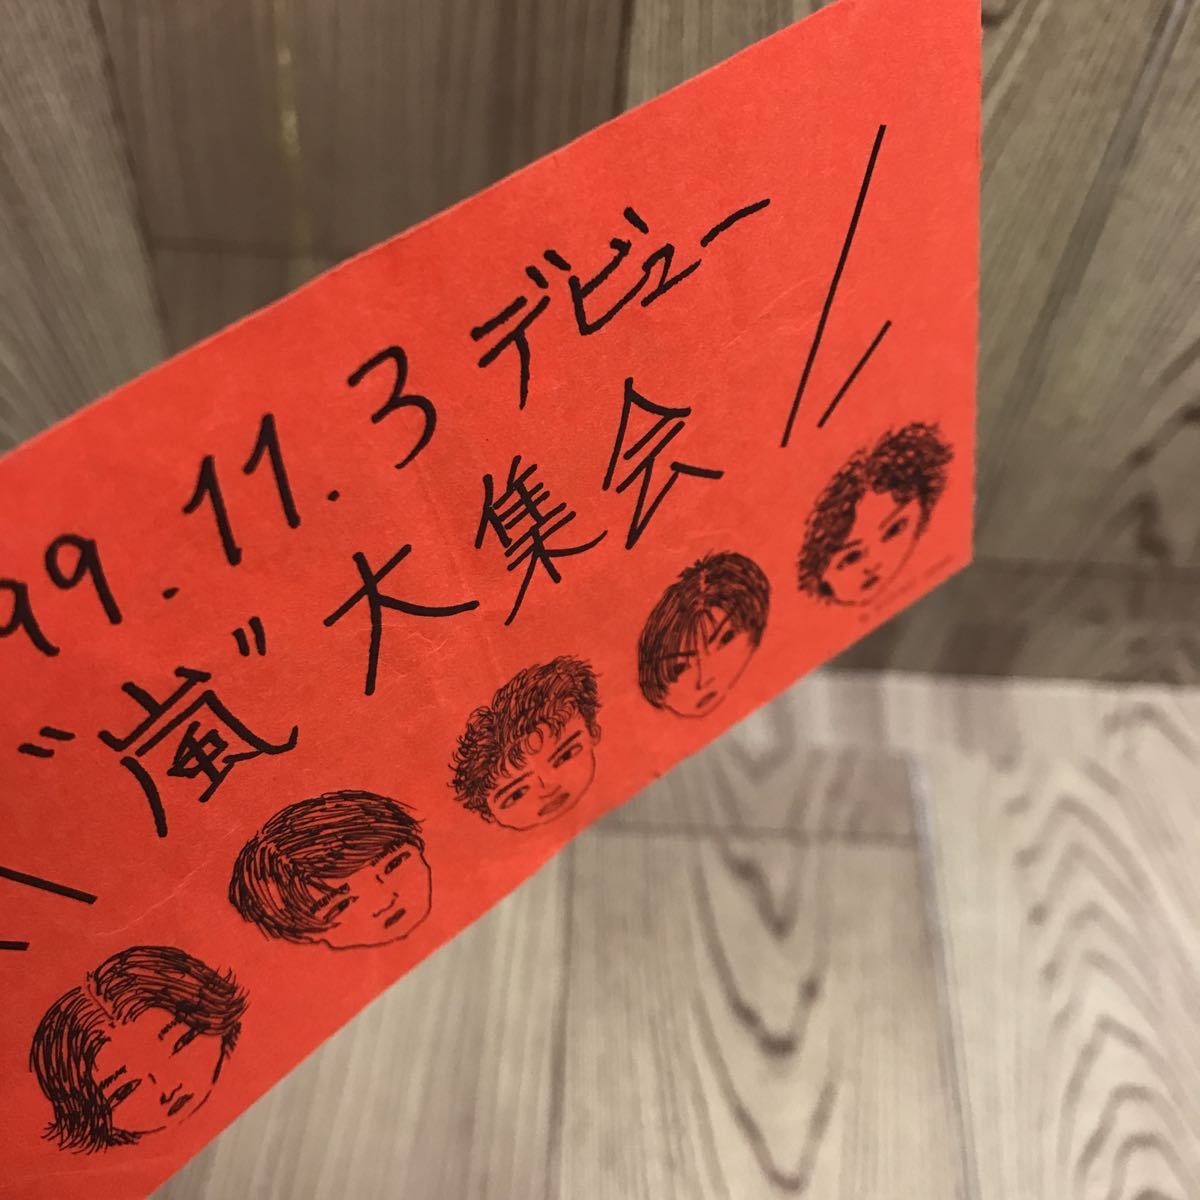 99.11.3 デビュー
"嵐" 大集会